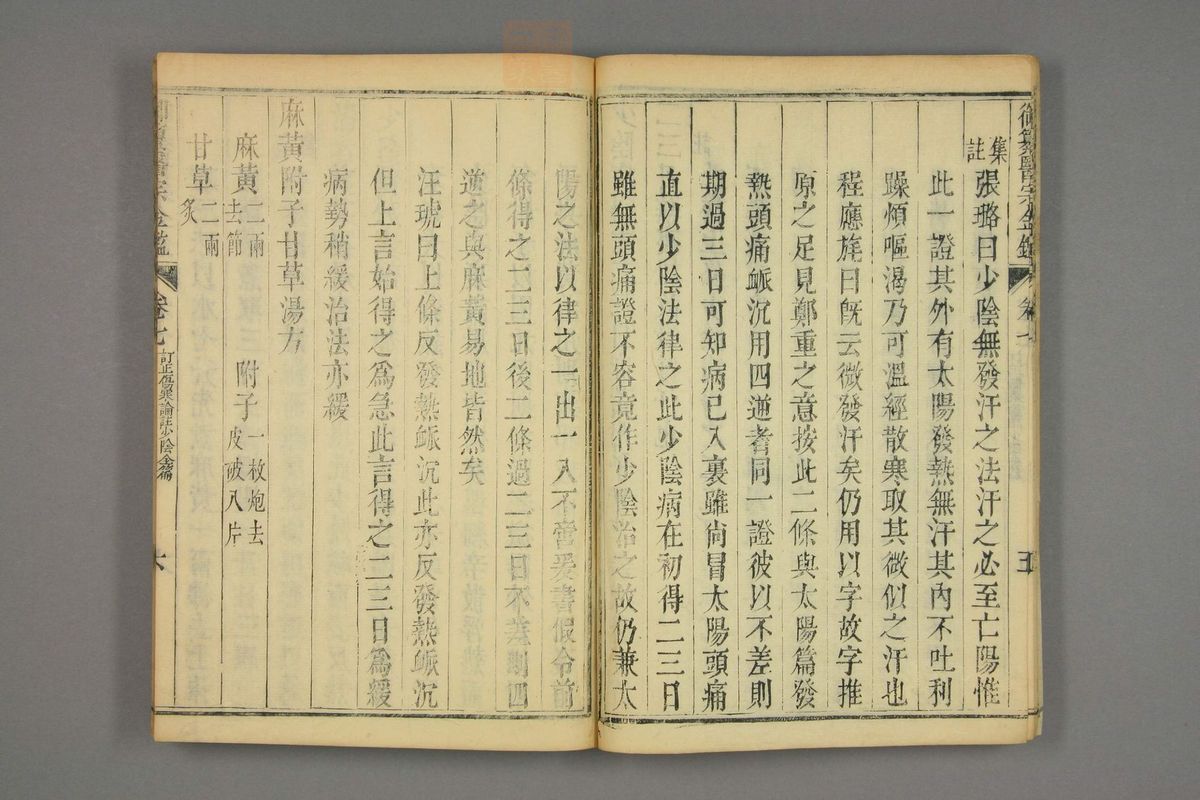 御纂醫宗金鑑 卷七 五
集註
張璐曰少陰無發汗之法汗之必至亡陽惟
此一證其外有太陽發熱無汗其內不吐利
躁煩嘔渴乃可溫經散寒取其微似之汗也
程應旄曰旣云微發汗矣仍用以字故字推
原之足見鄭重之意按此二條與太陽篇發
熱頭痛衇沉用四逆者同一證彼以不差則
期過三日可知病已入裏雖尙冒太陽頭痛
直以少陰法律之此少陰病在初得二三日
雖無頭痛證不容竟作少陰治之故仍兼太
陽之法以律之一出一入不啻爰書假令前
條得之二三日後二條過二三日不差期四
逆之與麻黃易地皆然矣
汪琥曰上條反發熱衇沉此亦反發熱衇沉
但上言始得之爲急此言得之二三日爲緩
病勢稍緩治法亦緩
麻黃附子甘草湯方
麻黃二兩去節 附子一枚炮去皮破八片
甘草二兩炙
卷七 訂正傷寒論註少陰全篇 六